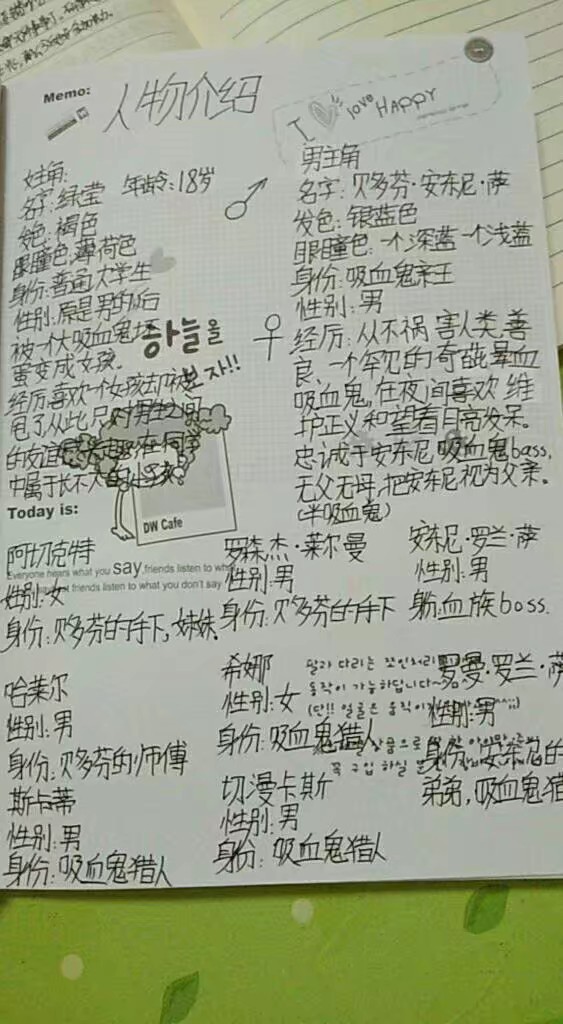 Memo:
人物介绍
I love HAPPY
女主角:
名字:绿莹 年龄:18岁
发色:褐色
眼瞳色:薄荷色
身份:普通大学生
性别:原是男的后
被一个大吸血鬼
蛋变成女孩.
经历:喜欢一个女孩却被
甩了从此只对男生之间
的友谊
中属于长不大的小孩.
하늘을
보자!!
DW Cafe
男主角
名字:贝多芬·安东尼·萨
发色:银蓝色
眼瞳色:一个深蓝一个浅蓝
身份:吸血鬼亲王
性别:男
经厉:从不祸害人类,善
良,一个罕见的奇葩晕血
吸血鬼,在夜间喜欢维
护正义和望着月亮发呆。
忠诚于安东尼吸血鬼bass,
无父无母,把安东尼视为父亲。
(半吸血鬼)
Today is:
阿切克特
Everyone hears what you say,friends listen to what
friends listen to what you don't say
性别:女
身份:贝多芬的手下,妹妹.
罗森杰·莱尔曼
性别:男
身份:贝多芬的手下
安东尼·罗兰·萨
性别:男
身份:血族boss.
哈莱尔
性别:男
身份:贝多芬的师傅
希娜
性别:女
身份:吸血鬼猎人
팔과 다리는
동작이 가능하답니다~
(단!! 얼굴은 움직이
꼭 구입 하실
罗曼·罗兰·萨
性别:男
身份:安东尼的
弟弟,吸血鬼猎
斯卡蒂
性别:男
身份:吸血鬼猎人
切漫卡斯
性别:男
身份:吸血鬼猎人